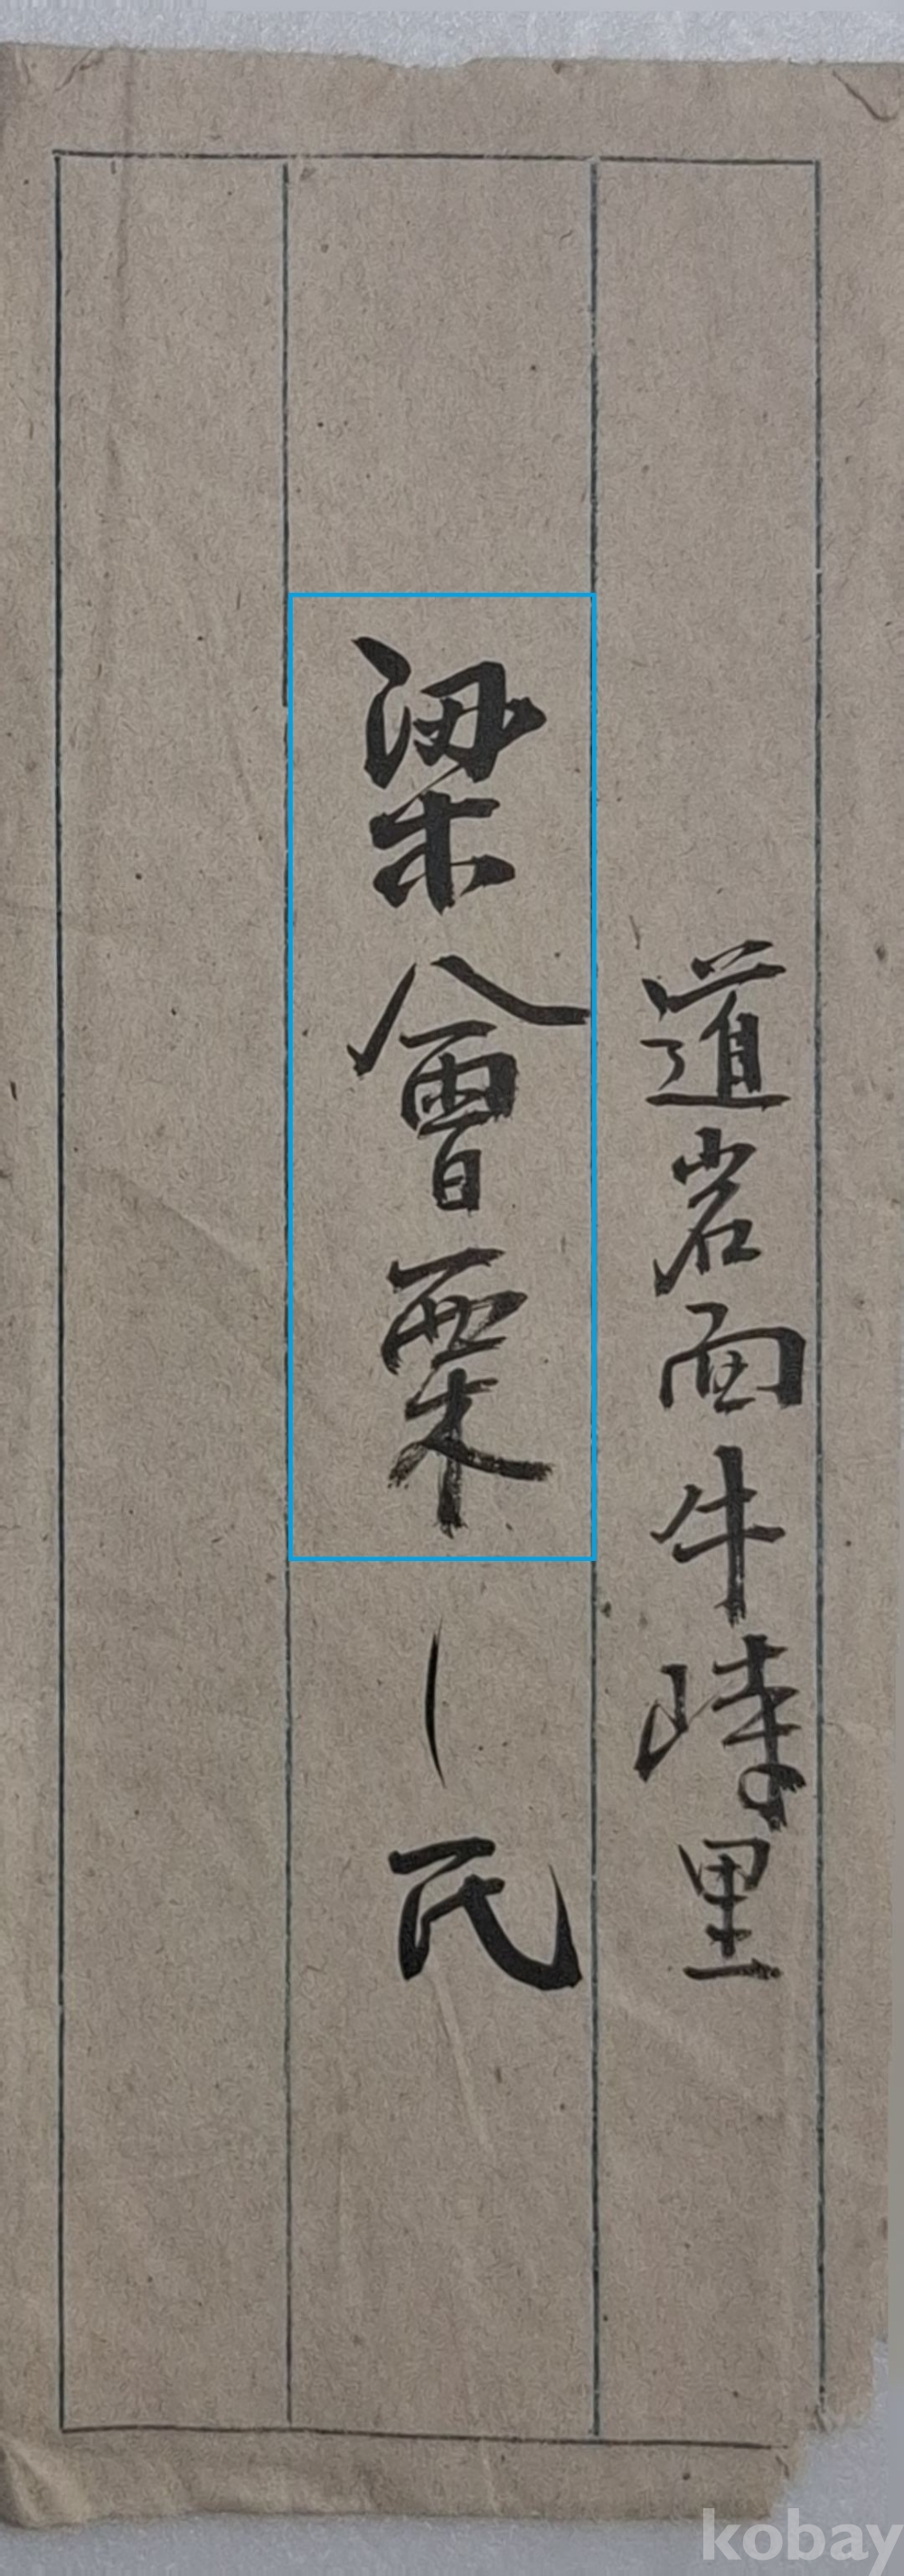 道岩面牛峙里
梁會栗
氏
kobay